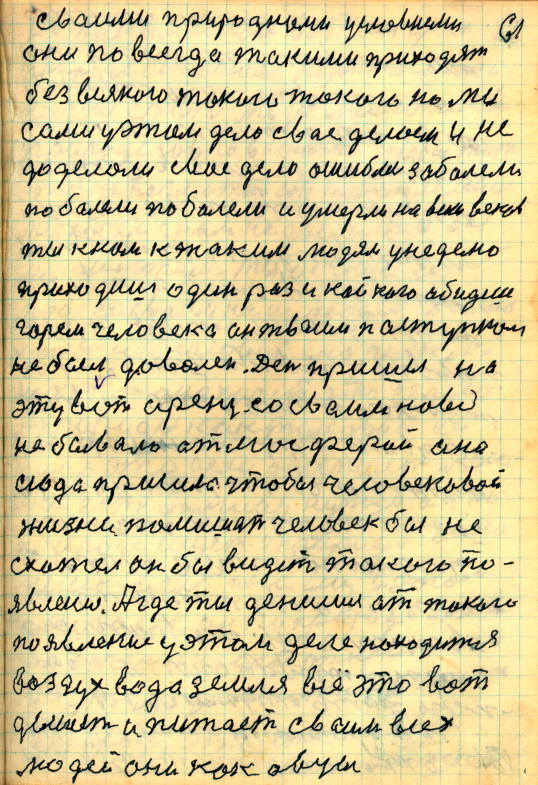 сваими природноми условиеми 61
они повсегда такими приходят
без всякого токого токого но мы
сами уэтом дело свае делоем и не
доделоли свое дело ошиблис заболели
поболели поболели и умерли на веки веков
ты к ном к таким людям унедено
приходиш один раз и кой кого обидиш
горем человека он тваим паступком
не был доволен. Ден пришел на
эту вот арену со сваим ново
не бывало атмосферой она
сюда пришла чтобы человековой
жизни помишат человек бы не
схотел он бы видит такого по-
явлени. А где ты денишся от токого
появление уэтом деле находится
воздух вода земля всё это вот
движет и питает сваим всех
людей они как овци